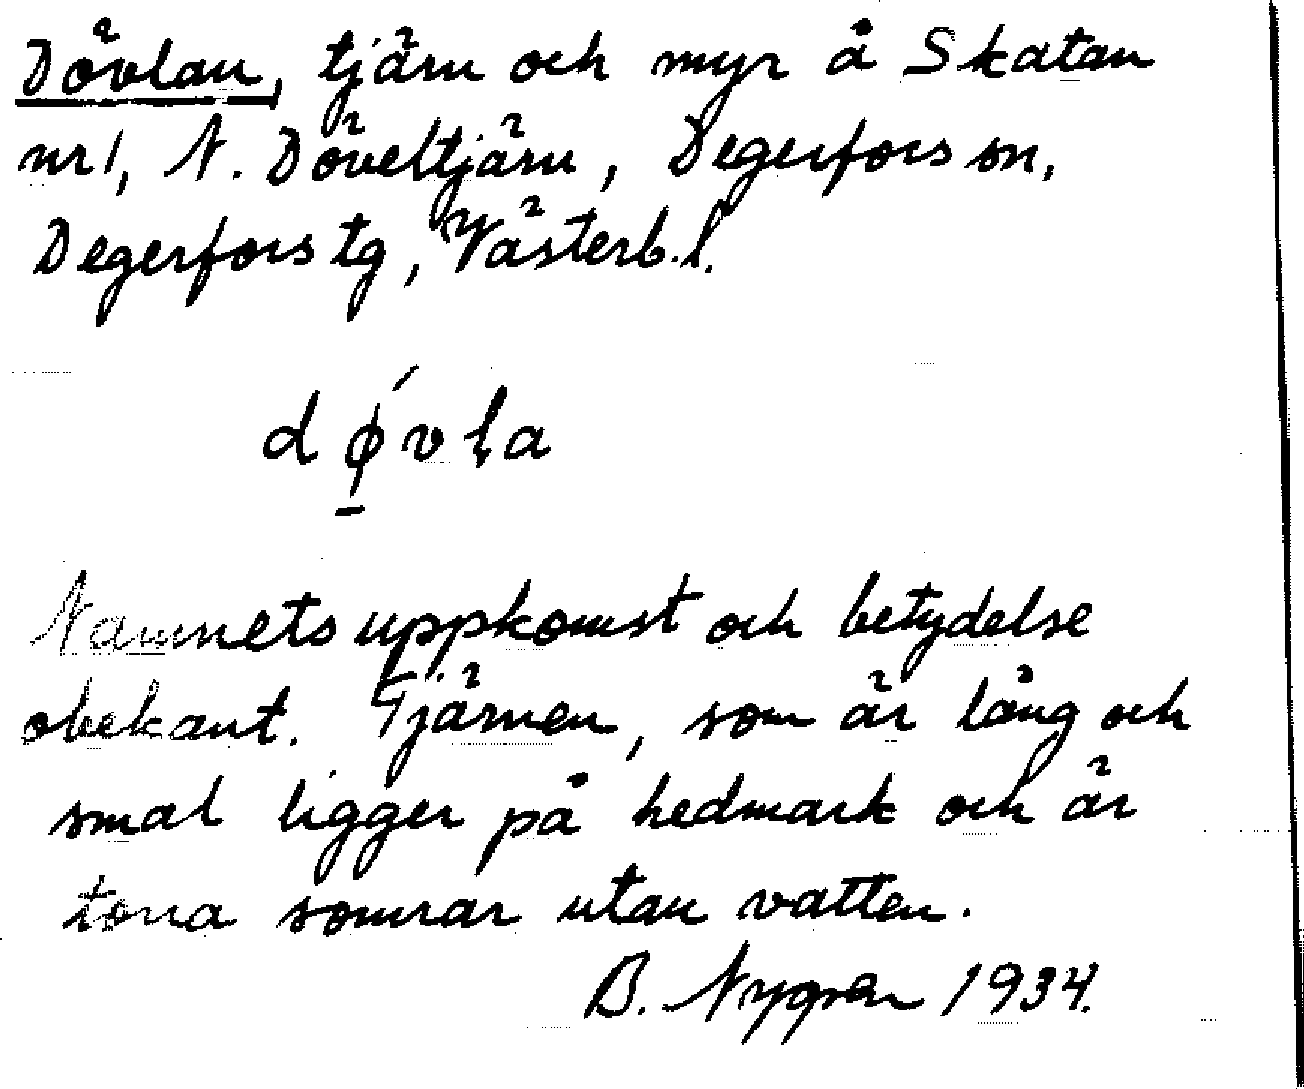 Dövlan, tjärn och myr å Skatan
nr 1, N. Döveltjärn, Degerfors sn,
Degerfors tg, Västerb. l.
dǿ̱vla
Namnets uppkomst och betydelse
obekant. Tjärnen, som är lång och
smal ligger på hedmark och är
torra somrar utan vatten.
B. Nygren 1934.